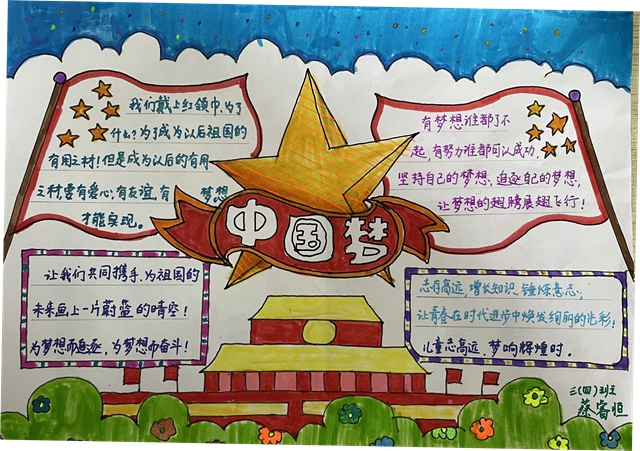 我们戴上红领巾,为了
什么?为了成为以后祖国的
有用之材!但是成为以后的有用
之材要有爱心,有友谊,有梦想
才能实现。
有梦想谁都了不
起,有努力谁都可以成功,
坚持自己的梦想,追逐自己的梦想,
让梦想的翅膀展翅飞行!
中国梦
让我们共同携手,为祖国的
未来画上一片蔚蓝的晴空!
为梦想而追逐,为梦想而奋斗!
志存高远,增长知识,锤炼意志,
让青春在时代进步中焕发绚丽的光彩!
儿童志高远,梦响辉煌时。
三(四)班
蔡睿恒